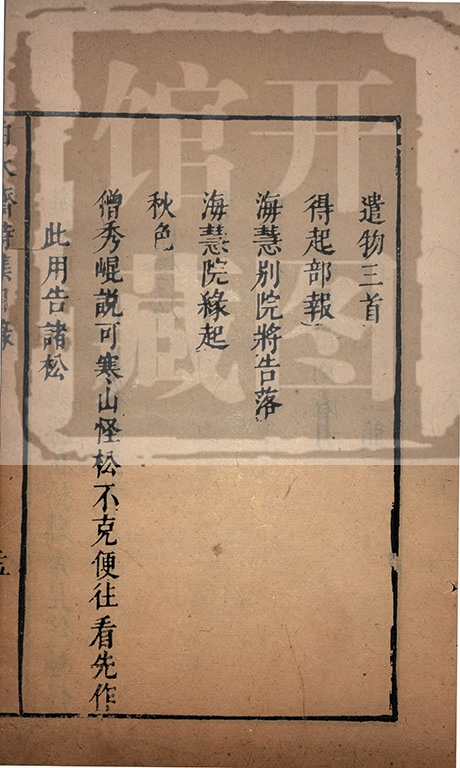 遣物三首
得起部報
海慧別院將告落
海慧院緣起
秋色
僧秀崐説可寒山怪松不克便往看先作
此用告諸松
開圖
館藏